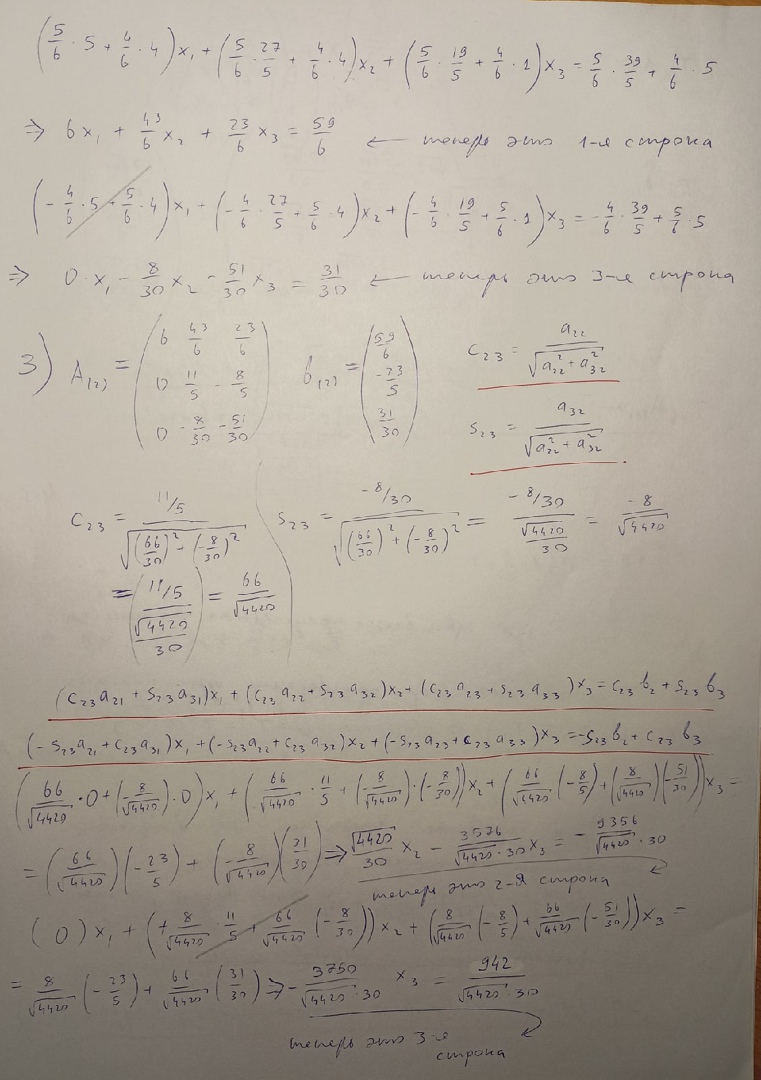 (5/6 · 5 + 4/6 · 4)x₁ + (5/6 · 27/5 + 4/6 · 4)x₂ + (5/6 · 19/5 + 4/6 · 1)x₃ = 5/6 · 39/5 + 4/6 · 5
⇒ 6x₁ + 43/6 x₂ + 23/6 x₃ = 59/6 ← теперь это 1-я строка
(-4/6 · 5 + 5/6 · 4)x₁ + (-4/6 · 27/5 + 5/6 · 4)x₂ + (-4/6 · 19/5 + 5/6 · 1)x₃ = -4/6 · 39/5 + 5/6 · 5
⇒ 0 · x₁ - 8/30 x₂ - 51/30 x₃ = 31/30 ← теперь это 3-я строка
3) A₍₂₎ = (6 43/6 23/6; 0 11/5 -8/5; 0 -8/30 -51/30) b₍₂₎ = (59/6; -23/5; 31/30) c₂₃ = a₂₂/√(a₂₂² + a₃₂²)
s₂₃ = a₃₂/√(a₂₂² + a₃₂²)
c₂₃ = (11/5)/√((66/30)² + (-8/30)²) s₂₃ = (-8/30)/√((66/30)² + (-8/30)²) = (-8/30)/(√4420/30) = -8/√4420
= ((11/5)/(√4420/30)) = 66/√4420
(c₂₃a₂₁ + s₂₃a₃₁)x₁ + (c₂₃a₂₂ + s₂₃a₃₂)x₂ + (c₂₃a₂₃ + s₂₃a₃₃)x₃ = c₂₃b₂ + s₂₃b₃
(-s₂₃a₂₁ + c₂₃a₃₁)x₁ + (-s₂₃a₂₂ + c₂₃a₃₂)x₂ + (-s₂₃a₂₃ + c₂₃a₃₃)x₃ = -s₂₃b₂ + c₂₃b₃
(66/√4420 · 0 + (-8/√4420) · 0)x₁ + (66/√4420 · 11/5 + (-8/√4420) · (-8/30))x₂ + (66/√4420 (-8/5) + (8/√4420)(-51/30))x₃ =
= (66/√4420)(-23/5) + (-8/√4420)(31/30) ⇒ √4420/30 x₂ - 3576/(√4420 · 30) x₃ = -9356/(√4420 · 30)
теперь это 2-я строка
(0)x₁ + (+8/√4420 · 11/5 + 66/√4420 (-8/30))x₂ + (8/√4420 (-8/5) + 66/√4420 (-51/30))x₃ =
= 8/√4420 (-23/5) + 66/√4420 (31/30) ⇒ -3750/(√4420 · 30) x₃ = 942/(√4420 · 30)
теперь это 3-я
строка